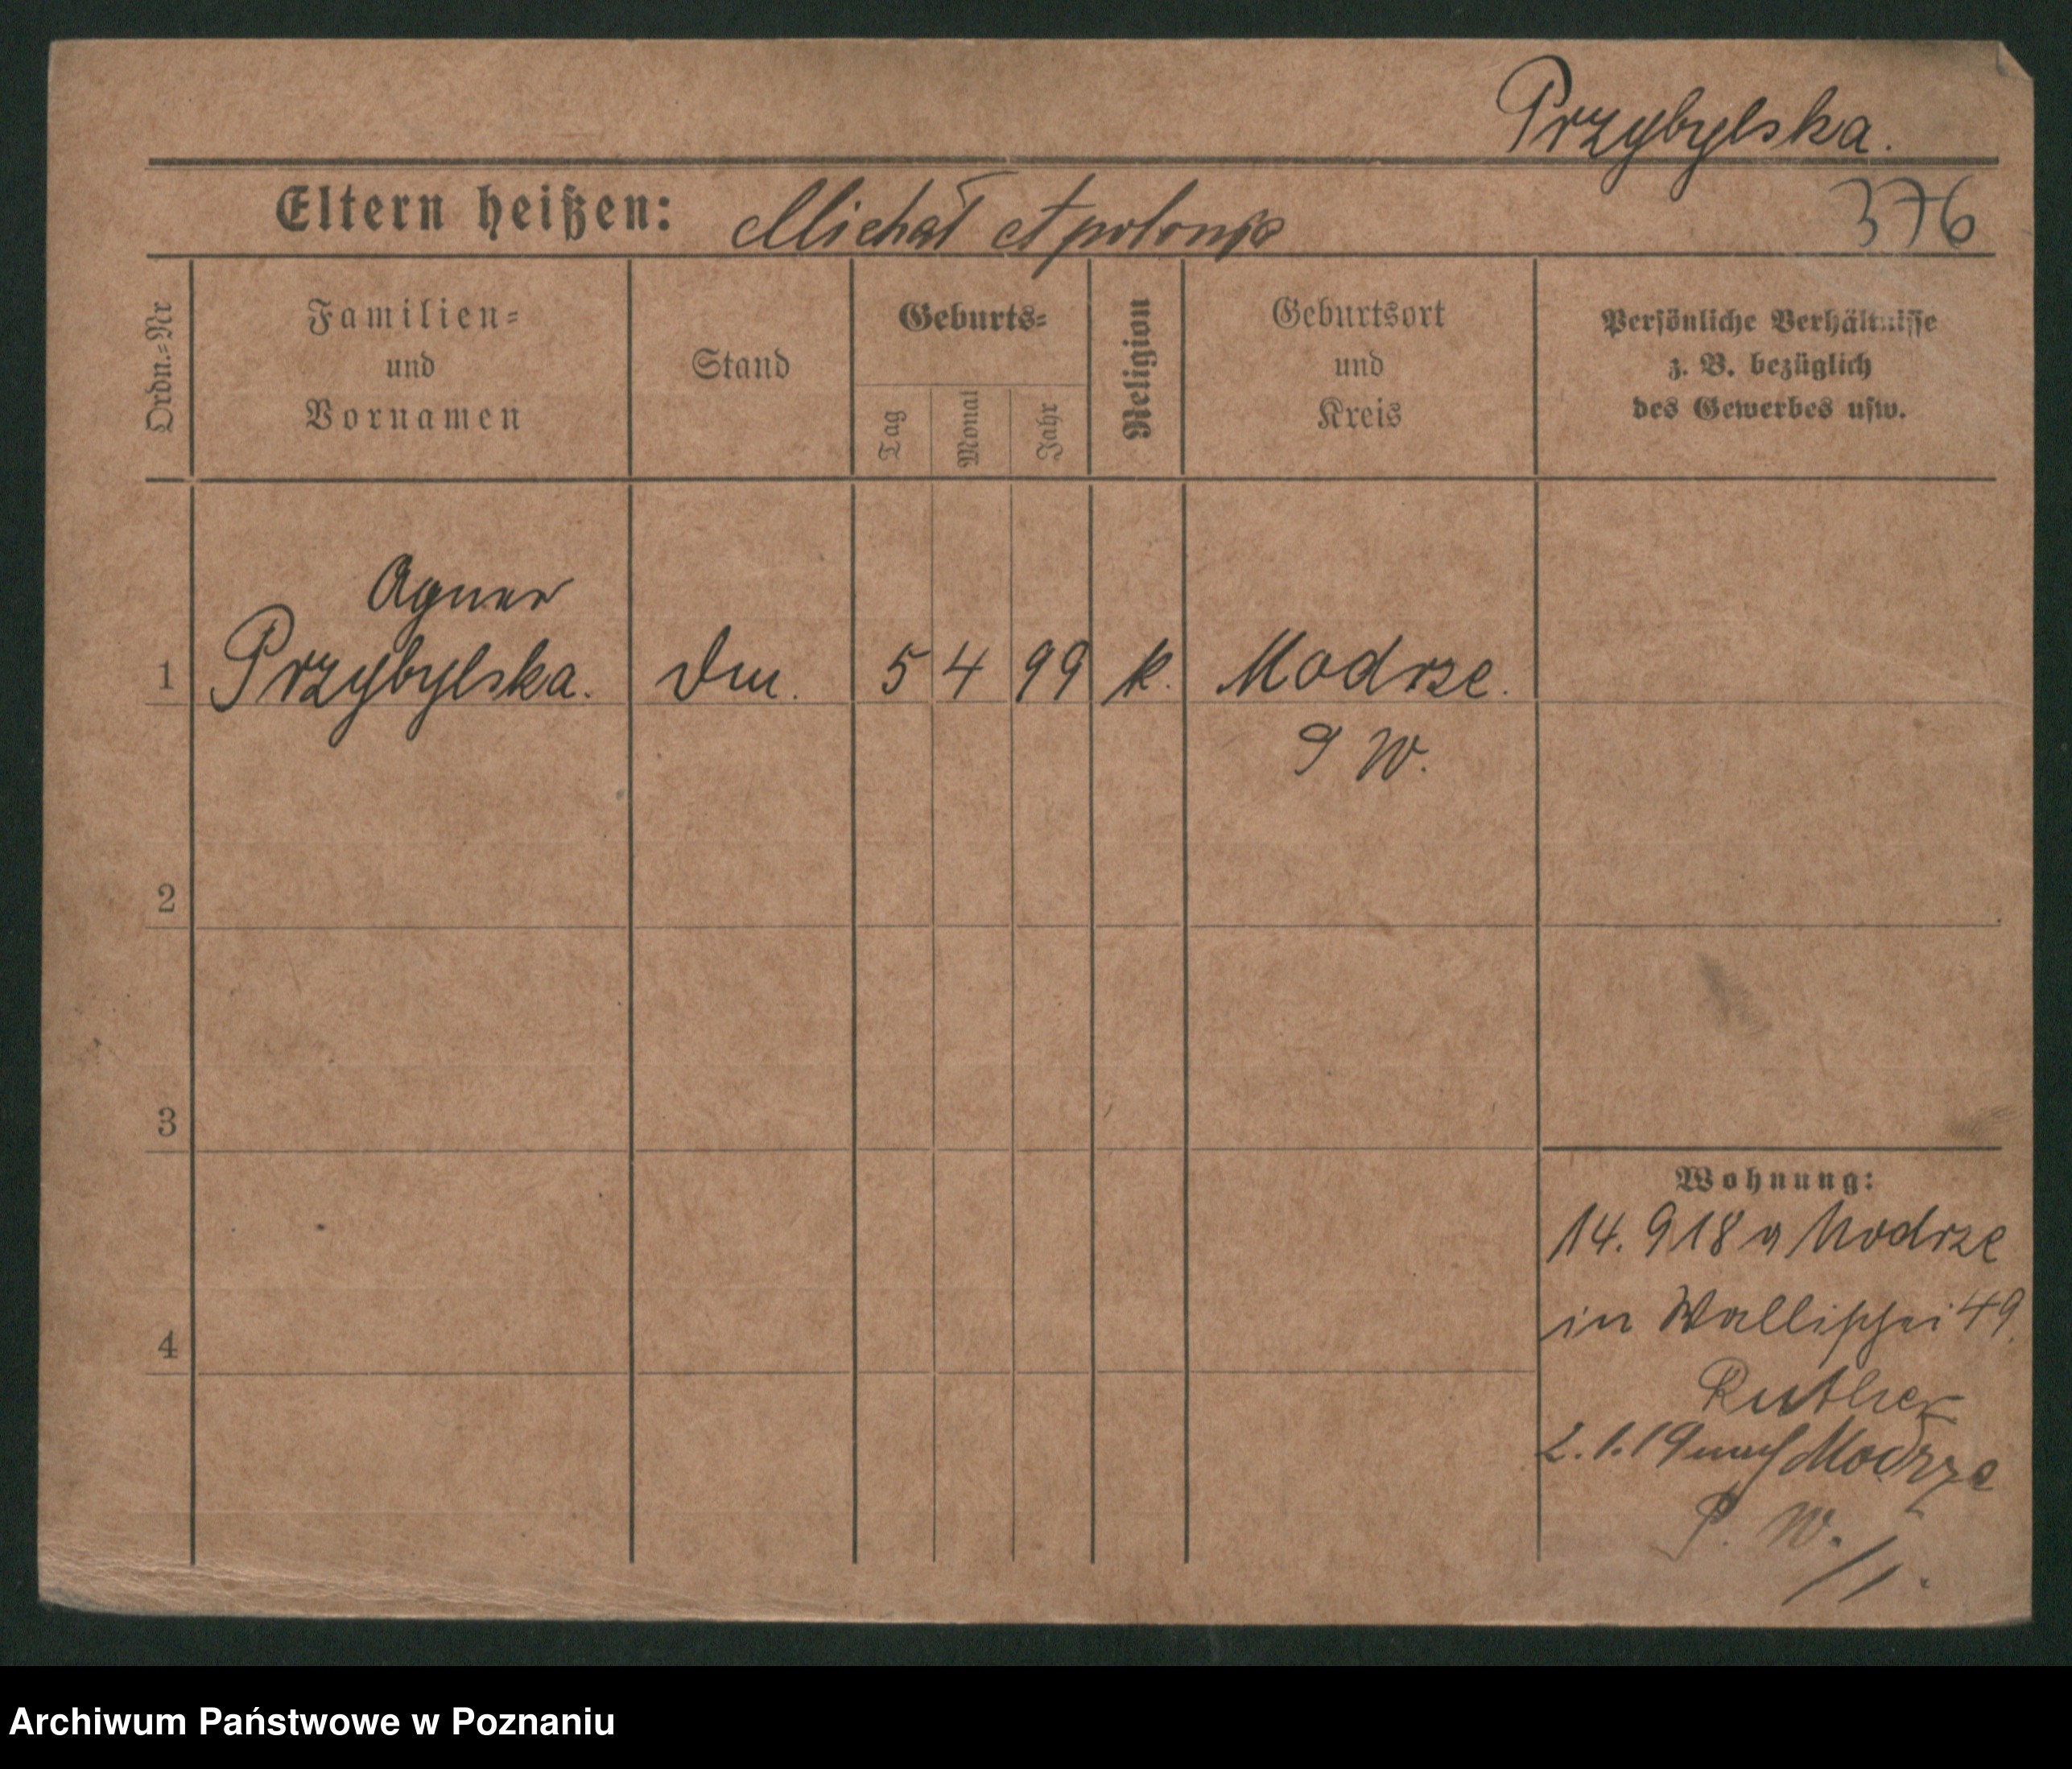 Przybylska.
Eltern heißen: Michał Apolonja
376
Ordn.=Nr
Familien=
und
Vornamen
Stand
Geburts=
Tag
Monat
Jahr
Religion
Geburtsort
und
Kreis
Persönliche Verhältnisse
z. B. bezüglich
des Gewerbes usw.
Agnes
1 Przybylska. 5 4 99 k. Modrze.
P W.
2
3
4
Wohnung:
14. 9 18 Modrze
in Wallischei 49.
2. 1. 19 nach Modrze
P. W.
Archiwum Państwowe w Poznaniu